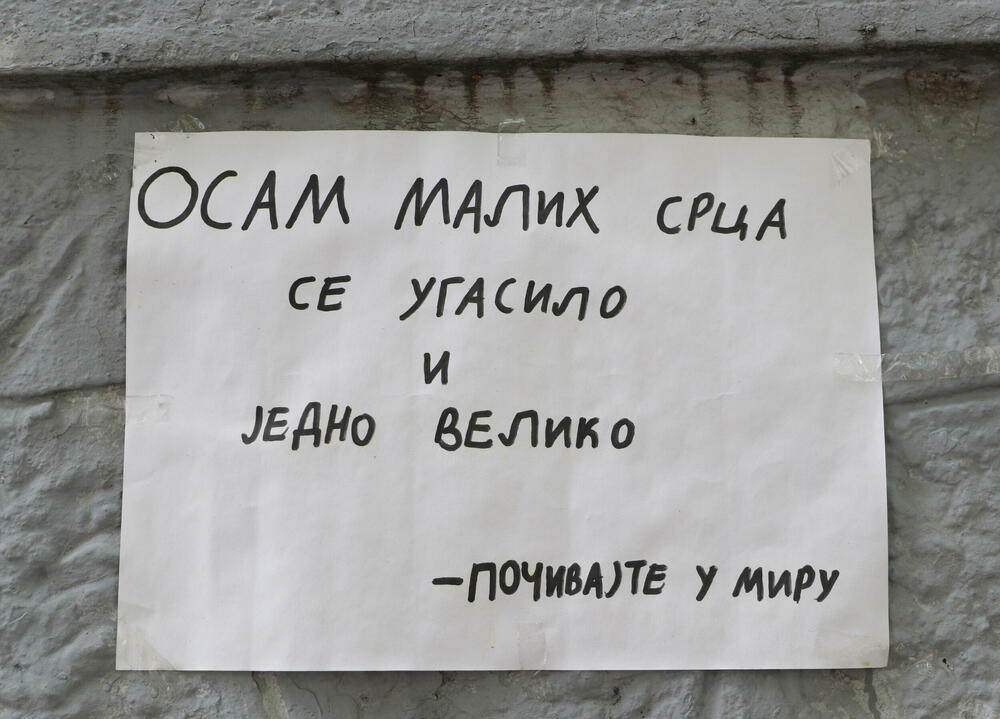 ОСАМ МАЛИХ СРЦА
СЕ УГАСИЛО
И
ЈЕДНО ВЕЛИКО
–ПОЧИВАЈТЕ У МИРУ